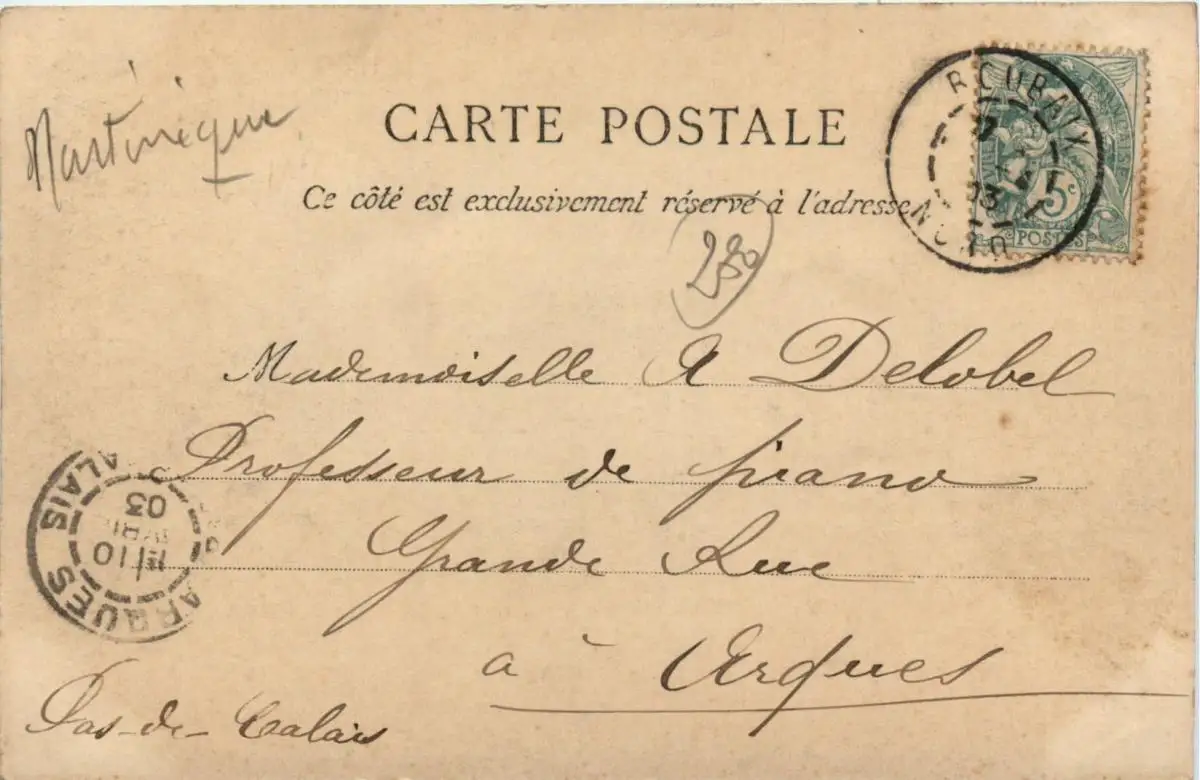 Martinique
CARTE POSTALE
Ce côté est exclusivement réservé à l'adresse
ROUBAIX
03
NORD
5c
POSTES
Mademoiselle A Delobel
Professeur de piano
Grande Rue
à Arques
Pas-de-Calais
ARQUES
CALAIS
10
03